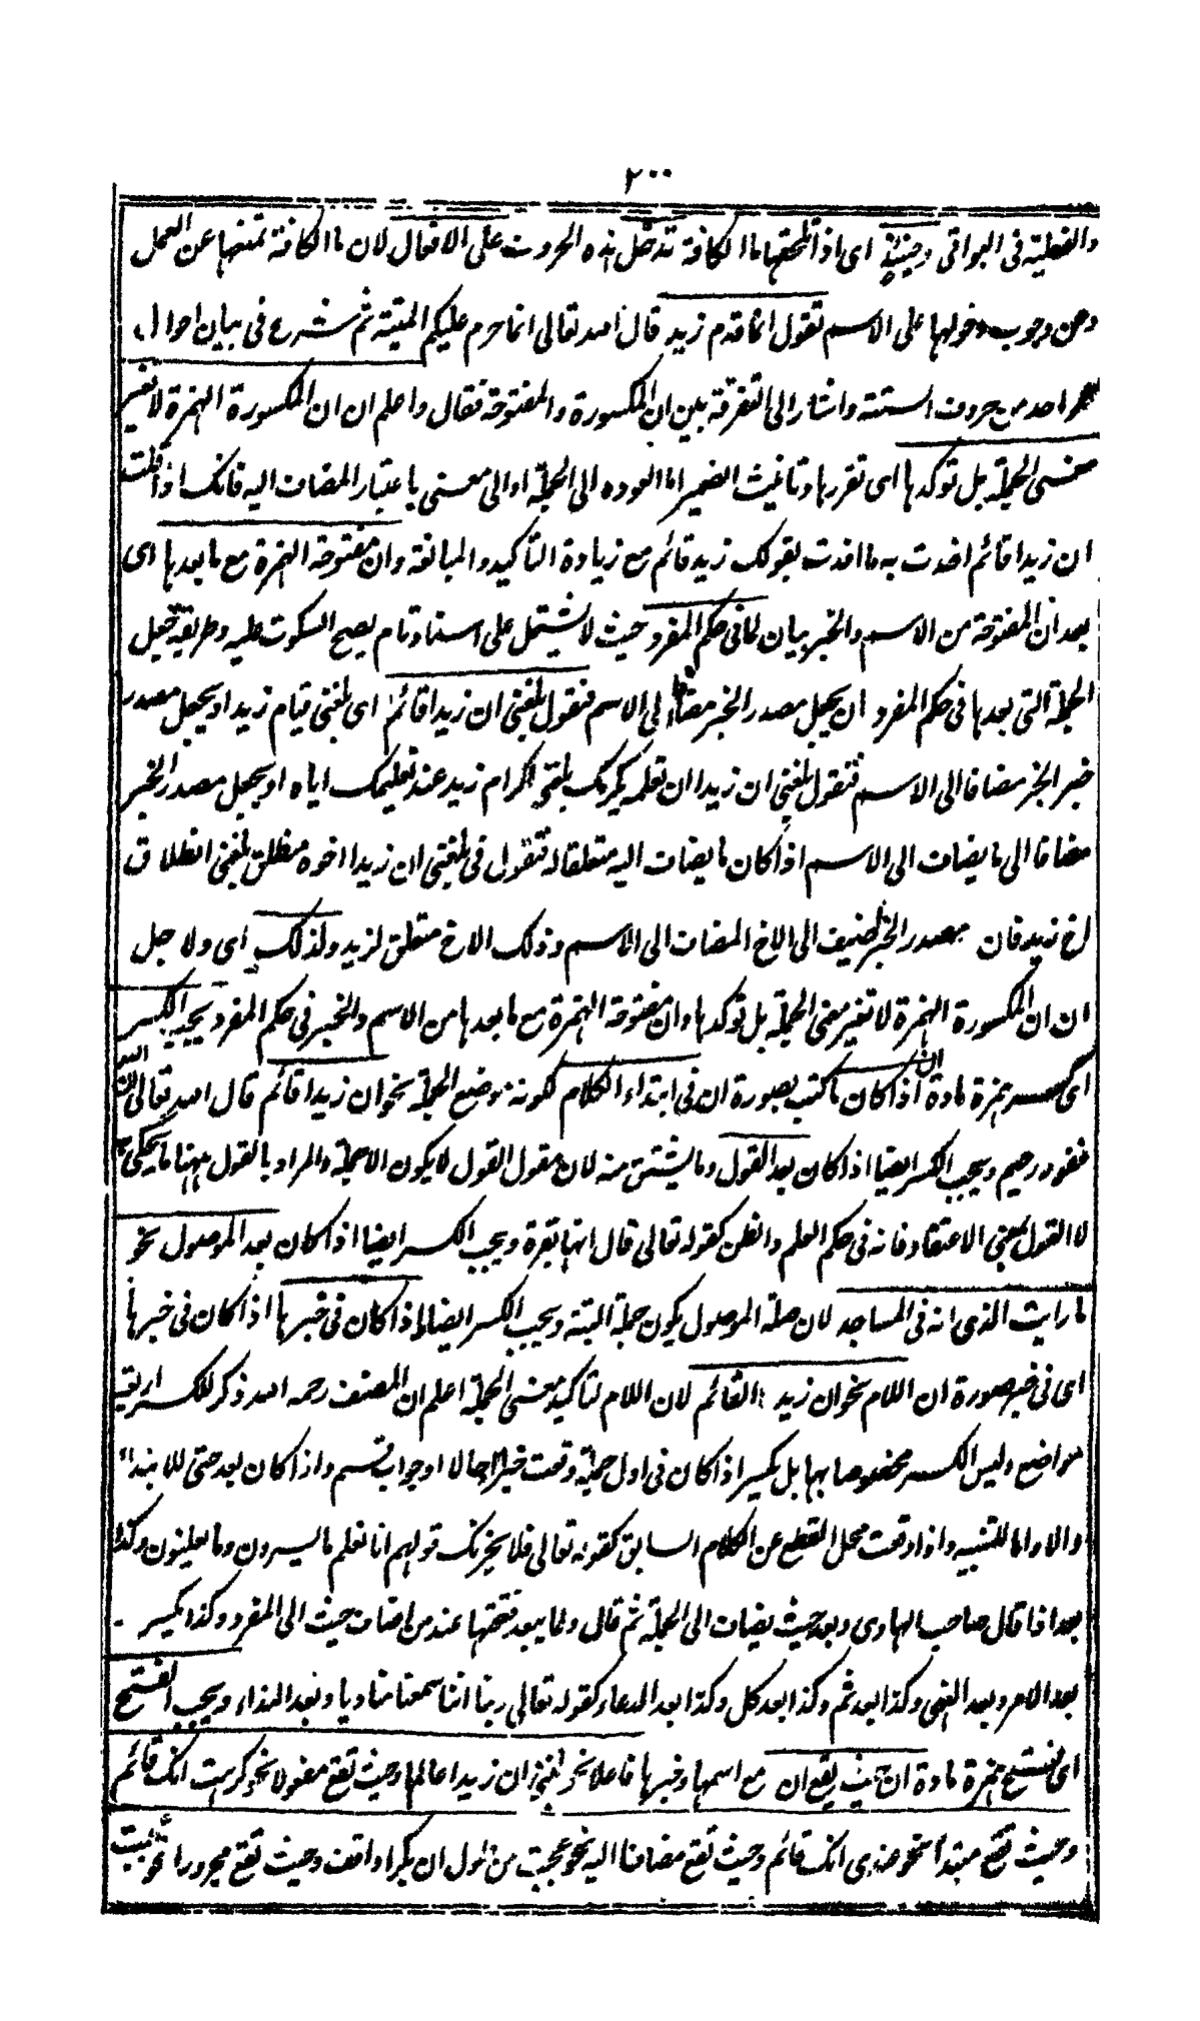 ٢٠٠
والفعلية فى البواقى وحينئذ اى اذا تلحقها ما الكافة تدخل هذه الحروف على الافعال لان ما الكافة تمنعها عن العمل
وعن وجوب دخولها على الاسم تقول انما قدم زيد قال الله تعالى انما حرم عليكم الميتة ثم شرع فى بيان احوال
كل واحد من حروف الستة واشار الى التفرقة بين ان المكسورة والمفتوحة فقال واعلم ان ان المكسورة الهمزة لا تغير
معنى الجملة بل توكدها اى تقررها وتانيث الضمير اما لعوده الى الجملة او الى معنى باعتبار المضاف اليه فانك اذا قلت
ان زيدا قائم افدت به ما افدت بقولك زيد قائم مع زيادة التاكيد والمبالغة وان مفتوحة الهمزة مع ما بعدها اى
بعد ان المفتوحة من الاسم والخبر بيان لما فى حكم المفرد حيث لا يشتمل على اسناد تام يصح السكوت عليه وطريقة جعل
الجملة التى بعدها فى حكم المفرد ان يجعل مصدر الخبر مضافا الى الاسم فتقول بلغنى ان زيدا قائم اى بلغنى قيام زيد او يجعل مصدر
خبر الخبر مضافا الى الاسم فتقول بلغنى ان زيدا ان تعلمه يكرمك بلغنى اكرام زيد عند تعليمك اياه او يجعل مصدر الخبر
مضافا الى ما يضاف الى الاسم اذا كان ما يضاف اليه متعلقا له فتقول فى بلغنى ان زيدا اخوه منطلق بلغنى انطلاق
اخ زيد فان مصدر الخبر اضيف الى الاخ المضاف الى الاسم وذلك الاخ متعلق لزيد ولذلك اى ولاجل
ان ان المكسورة الهمزة لا تغير معنى الجملة بل توكدها وان مفتوحة الهمزة مع ما بعدها من الاسم والخبر فى حكم المفرد يجب الكسر
اى كسر همزة مادة ان اذا كان ما كتب بصورة ان فى ابتداء الكلام لكونه موضع الجملة نحو ان زيدا قائم قال الله تعالى ان الله
غفور رحيم ويجب الكسر ايضا اذا كان بعد القول وما يشتق منه لان مقول القول لا يكون الا جملة والمراد بالقول ههنا ما يحكى به
لا القول بمعنى الاعتقاد فانه فى حكم العلم والظن كقوله تعالى قال انها بقرة ويجب الكسر ايضا اذا كان بعد الموصول نحو
ما رايت الذى انه فى المساجد لان صلة الموصول يكون جملة البتة ويجب الكسر ايضا اذا كان فى خبرها اذا كان فى خبرها
اى فى خبر صورة ان اللام نحو ان زيدا لقائم لان اللام لتاكيد معنى الجملة اعلم ان المصنف رحمه الله ذكر للكسر اربعة
مواضع وليس الكسر مخصوصا بها بل يكسر اذا كان فى اول جملة وقعت خبرا او حالا او جواب قسم واذا كان بعد حتى للابتداء
والا واما للتنبيه واذا وقعت محل القطع عن الكلام السابق كقوله تعالى فلا يحزنك قولهم انا نعلم ما يسرون وما يعلنون وكذا
بعد اذا قال صاحب الهادى وبعد حيث يضاف الى الجملة ثم قال ولما يبعد فتحها عند من اضاف حيث الى المفرد وكذا يكسر
بعد الامر وبعد النهى وكذا بعد ثم وكذا بعد كل وكذا بعد الدعاء كقوله تعالى ربنا اننا سمعنا مناديا وبعد النداء ويجب الفتح
اى فتح همزة مادة ان حيث يقع ان مع اسمها وخبرها فاعلا نحو بلغنى ان زيدا عالم وحيث تقع مفعولا نحو كرهت انك قائم
وحيث تقع مبتدأ نحو عندى انك قائم وحيث تقع مضافا اليه نحو عجبت من طول ان بكرا واقف وحيث تقع مجرورا نحو عجبت